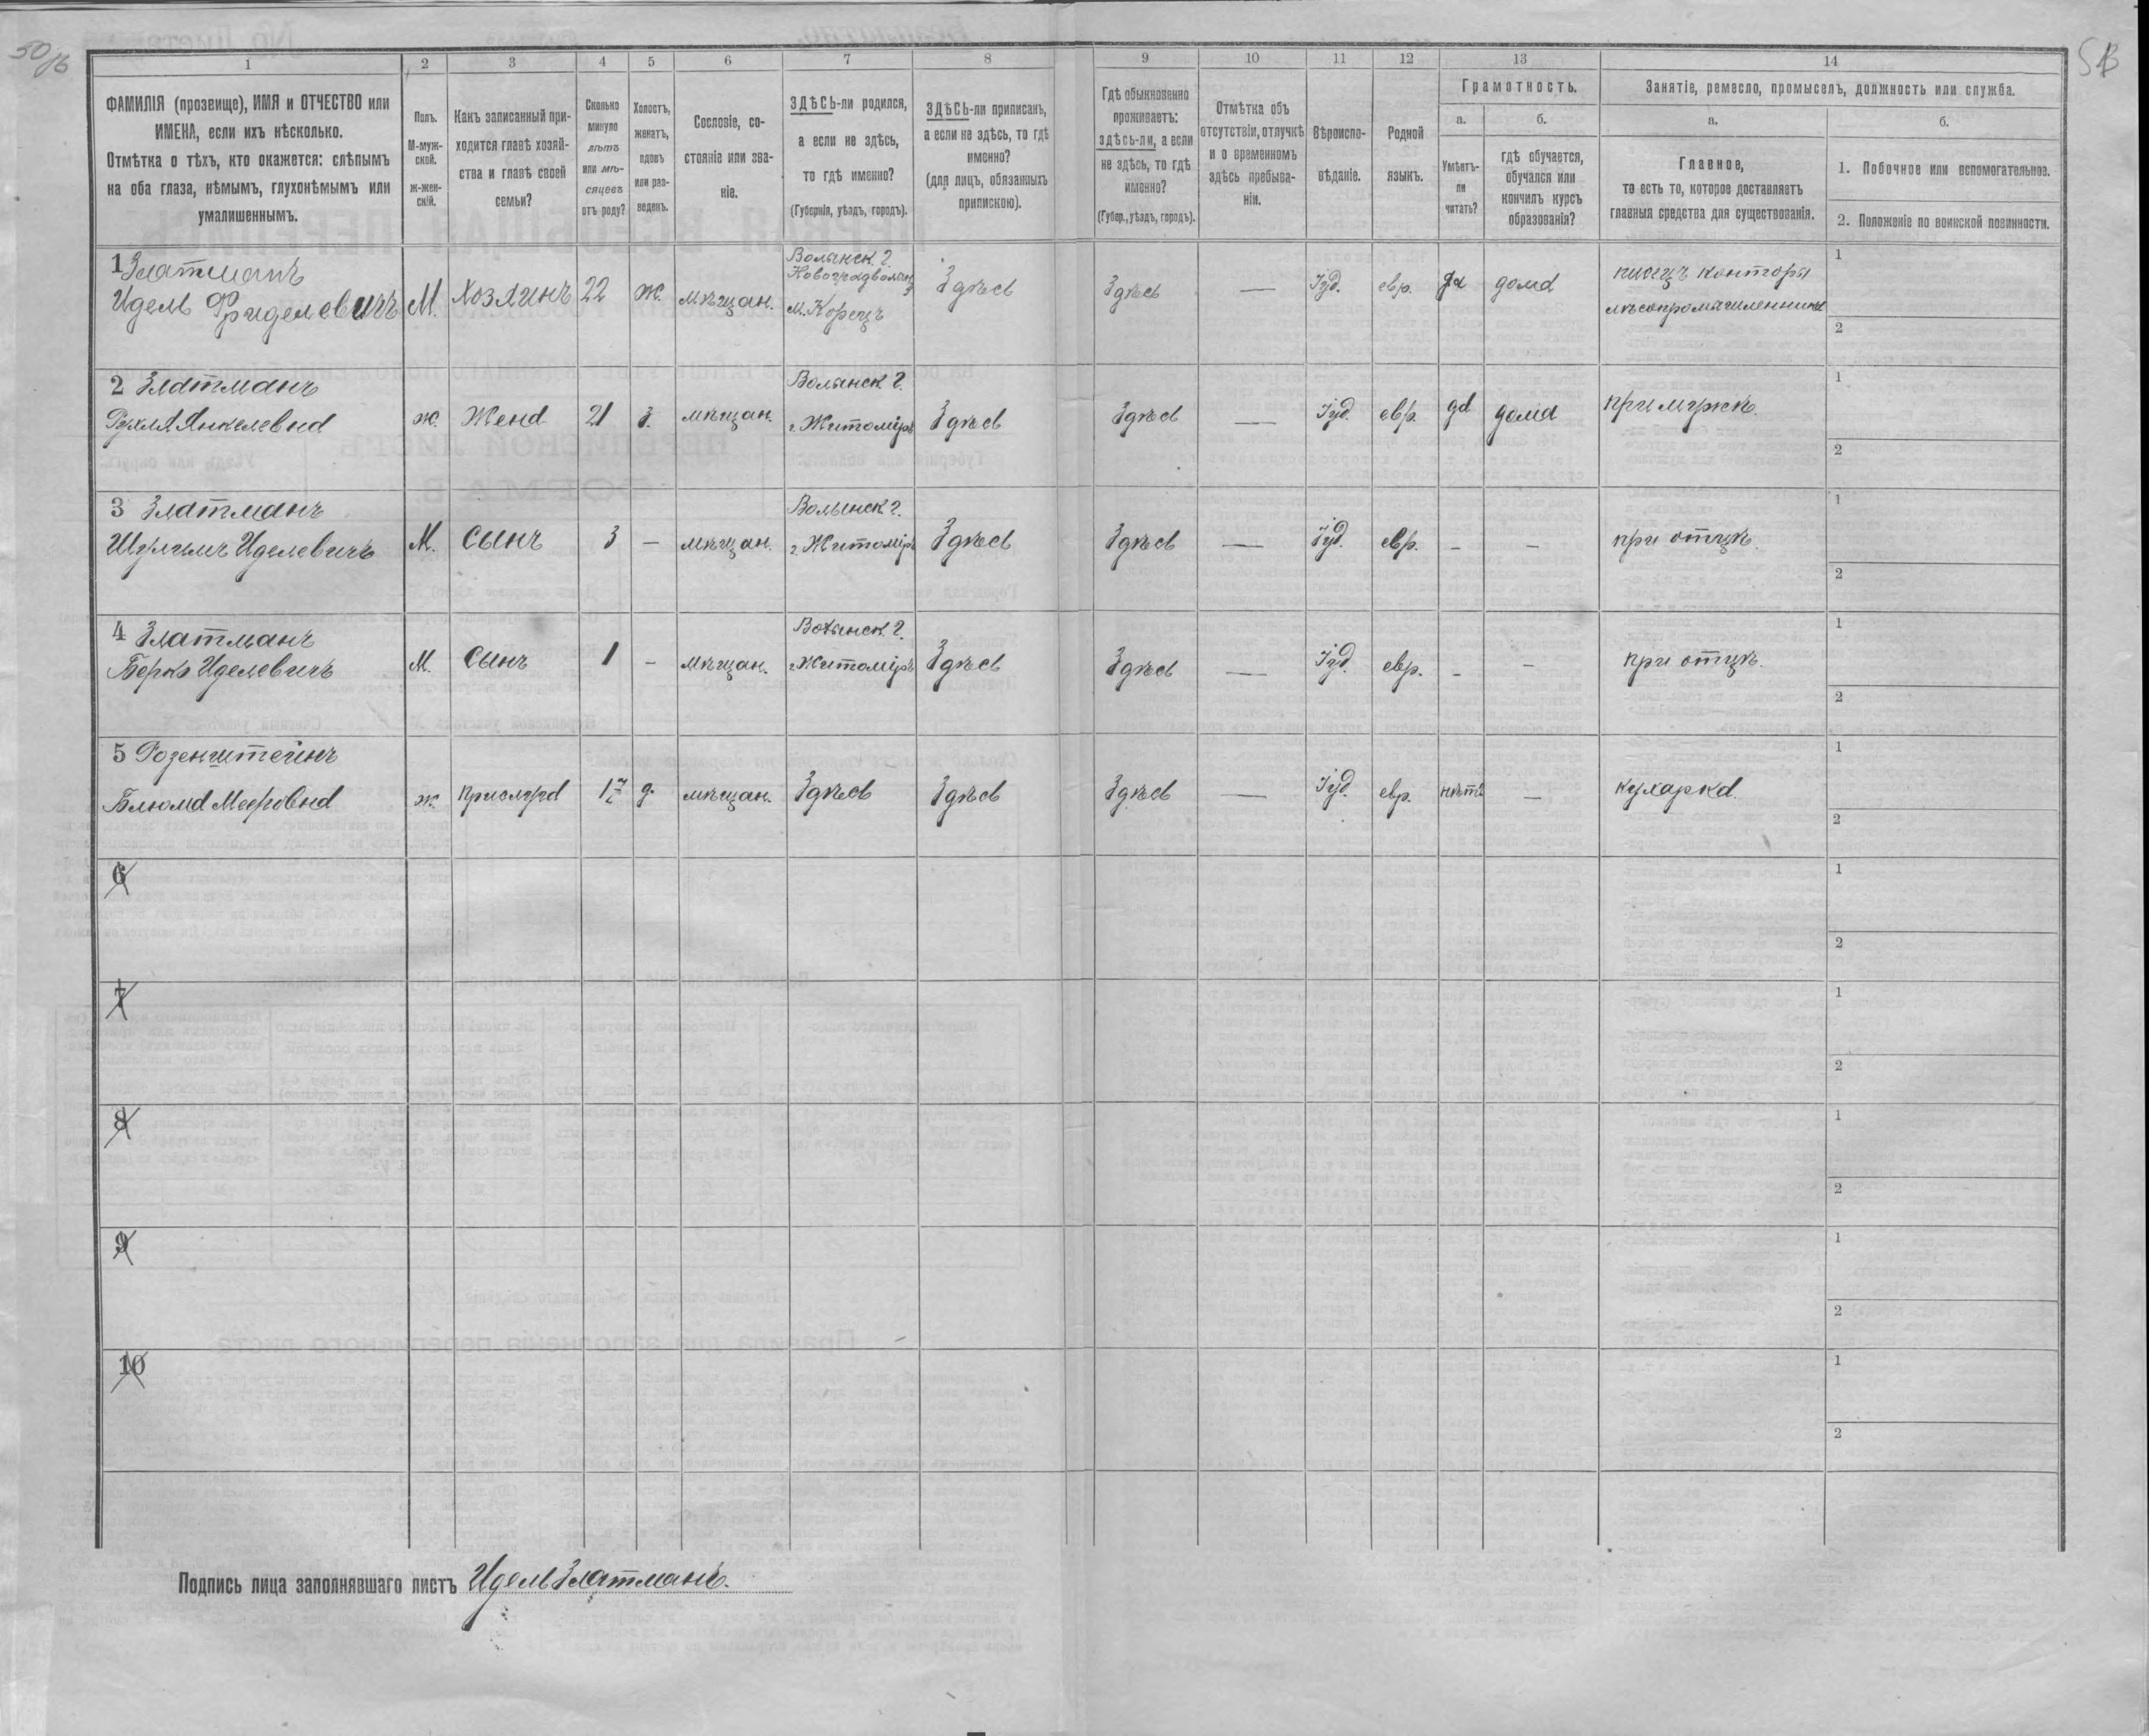 50/16
5В
1 2 3 4 5 6 7 8 9 10 11 12 13 14
ФАМИЛІЯ (прозвище), ИМЯ и ОТЧЕСТВО или
ИМЕНА, если ихъ нѣсколько.
Отмѣтка о тѣхъ, кто окажется: слѣпымъ
на оба глаза, нѣмымъ, глухонѣмымъ или
умалишеннымъ.
Полъ.
М-муж-
ской.
Ж-жен-
скій.
Какъ записанный при-
ходится главѣ хозяй-
ства и главѣ своей
семьи?
Сколько
минуло
лѣтъ
или мѣ-
сяцевъ
отъ роду?
Холостъ,
женатъ,
вдовъ
или раз-
веденъ.
Сословіе, со-
стояніе или зва-
ніе.
ЗДѢСЬ-ли родился,
а если не здѣсь,
то гдѣ именно?
(Губернія, уѣздъ, городъ).
ЗДѢСЬ-ли приписанъ,
а если не здѣсь, то гдѣ
именно?
(для лицъ, обязанныхъ
припискою).
Гдѣ обыкновенно
проживаетъ:
здѣсь-ли, а если
не здѣсь, то гдѣ
именно?
(Губер., уѣздъ, городъ).
Отмѣтка объ
отсутствіи, отлучкѣ
и о временномъ
здѣсь пребыва-
ніи.
Вѣроиспо-
вѣданіе.
Родной
языкъ.
Грамотность.
а.
Умѣетъ-
ли
читать?
б.
гдѣ обучается,
обучался или
кончилъ курсъ
образованія?
Занятіе, ремесло, промыселъ, должность или служба.
а.
Главное,
то есть то, которое доставляетъ
главныя средства для существованія.
б.
1. Побочное или вспомогательное.
2. Положеніе по воинской повинности.
1 Златманъ
Идель Фриделевичъ М. Хозяинъ 22 ж. мѣщан.
Волынск. г.
Новоградволын
м. Корецъ
Здѣсь Здѣсь Іуд. евр. да дома
писецъ конторы
лѣсопромышленника
1
2
2 Златманъ
Рухля Янкелевна ж. Жена 21 з. мѣщан.
Волынск. г.
г. Житоміръ
Здѣсь Здѣсь — Іуд. евр. да дома при мужѣ.
1
2
3 Златманъ
Шулимъ Иделевичъ М. Сынъ 3 — мѣщан.
Волынск. г.
г. Житоміръ
Здѣсь Здѣсь — Іуд. евр. — — при отцѣ.
1
2
4 Златманъ
Берко Иделевичъ М. Сынъ 1 — мѣщан.
Волынск. г.
г. Житоміръ
Здѣсь Здѣсь — Іуд. евр. — — при отцѣ.
1
2
5 Розенштейнъ
Блюма Мееровна ж. прислуга 17 д. мѣщан. Здѣсь Здѣсь Здѣсь — Іуд. евр. нѣтъ — кухарка.
1
2
6
1
2
7
1
2
8
1
2
9
1
2
10
1
2
Подпись лица заполнявшаго листъ Идель Златманъ.